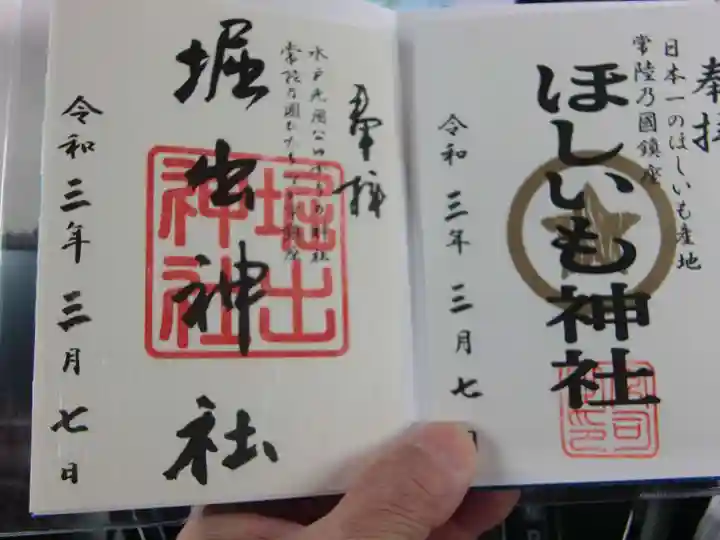 奉拝
日本一のほしいも産地
常陸乃國鎮座
ほしいも神社
令和三年三月七日
奉拝
水戸光圀公ゆかりの神社
常陸乃國ひたちなか鎮座
堀出神社
堀出神社
令和三年三月七日